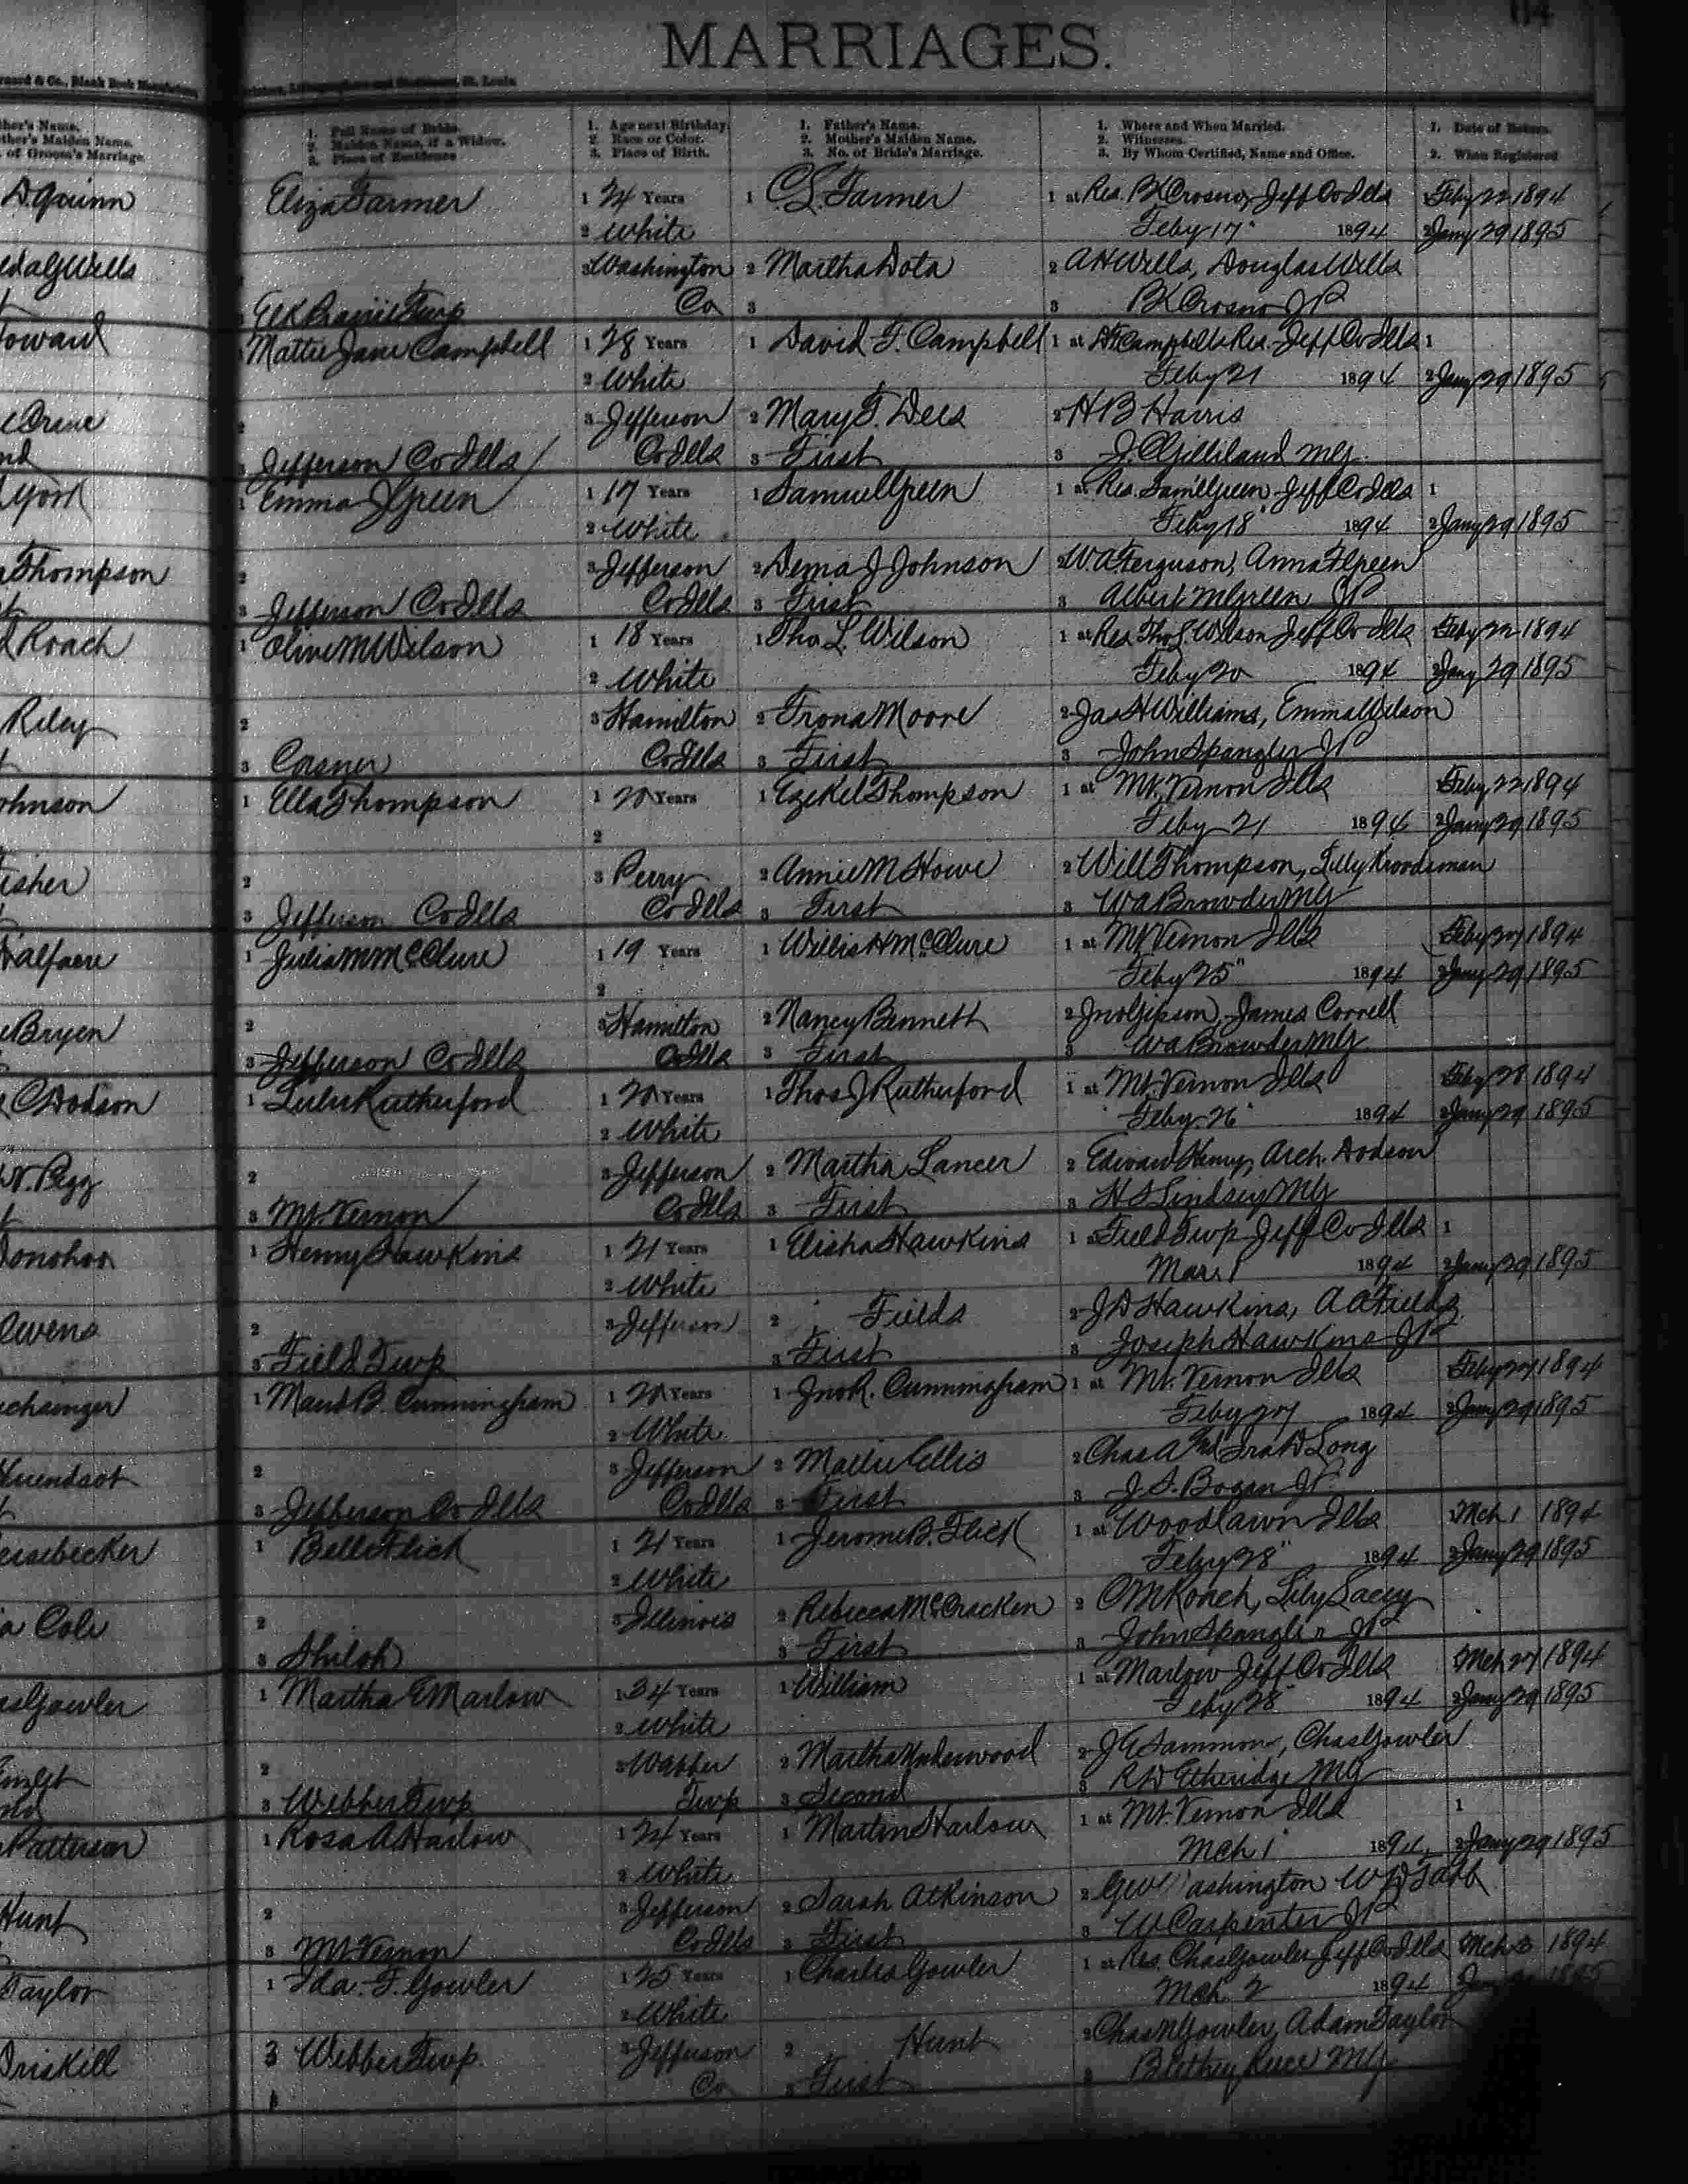 MARRIAGES.
D. Quinn
Wells
Howard
York
Thompson
Roach
Riley
Johnson
Fisher
Bryen
C Dodson
N. Pegg
Donohoo
Owens
Cole
Gowler
Patterson
Hunt
Taylor
Driskill
1. Full Name of Bride.
2. Maiden Name, if a Widow.
3. Place of Residence
1. Age next Birthday.
2. Race or Color.
3. Place of Birth.
1. Father's Name.
2. Mother's Maiden Name.
3. No. of Bride's Marriage.
1. Where and When Married.
2. Witnesses.
3. By Whom Certified, Name and Office.
1. Date of Return.
2. When Registered
Eliza Farmer
Elk Prairie Twp
1 24 Years
2 White
3 Washington
Co
1 C. S. Farmer
2 Martha Dota
3
1 at Res. B K Crosno, Jeff Co Ills
Feby 17" 1894
2 A H Wells, Douglas Wells
3 B K Crosno J P
Feby 22 1894
2 Jany 29 1895
Mattie Jane Campbell
2
3 Jefferson Co Ills
1 28 Years
2 White
3 Jefferson
Co Ills
1 David F. Campbell
2 Mary F. Dees
3 First
1 at D F Campbells Res. Jeff Co Ills
Feby 21 1894
2 H B Harris
3 J. C Gilliland M G
1
2 Jany 29 1895
1 Emma J Green
2
3 Jefferson Co Ills
1 17 Years
2 White
3 Jefferson
Co Ills
1 Samuel Green
2 Dema J Johnson
3 First
1 at Res. Saml Green Jeff Co Ills
Feby 18" 1894
2 W A Ferguson, Anna F Green
3 Albert M Green J P
1
2 Jany 29 1895
1 Olive M Wilson
2
3 Casner
1 18 Years
2 White
3 Hamilton
Co Ills
1 Tho. L. Wilson
2 Frona Moore
3 First
1 at Res Tho L Wilson Jeff Co Ills
Feby 20 1894
2 Jas H Williams, Emma Wilson
3 John Spangler J P
Feby 22 1894
2 Jany 29 1895
1 Ella Thompson
2
3 Jefferson Co Ills
1 20 Years
2
3 Perry
Co Ills
1 Ezekel Thompson
2 Annie M Howe
3 First
1 at Mt. Vernon Ills
Feby 21 1894
2 Will Thompson, Lilly Kroodsman
3 W A Browder M G
Feby 22 1894
2 Jany 29 1895
1 Julia M McClure
2
3 Jefferson Co Ills
1 19 Years
2
3 Hamilton
Co Ills
1 Willis H McClure
2 Nancy Bennett
3 First
1 at Mt Vernon Ills
Feby 25" 1894
2 Jno Gipson, James Correll
3 W A Browder M G
Feby 27 1894
2 Jany 29 1895
1 Lulu Rutherford
2
3 Mt. Vernon
1 20 Years
2 White
3 Jefferson
Co Ills
1 Thos J Rutherford
2 Martha Lancer
3 First
1 at Mt. Vernon Ills
Feby. 26" 1894
2 Edward Henry, Arch. Dodson
3 H S Lindsey M G
Feby 28 1894
2 Jany 29 1895
1 Henry Hawkins
2
3 Field Twp
1 21 Years
2 White
3 Jefferson
1 Elisha Hawkins
2 Fields
3 First
1 Field Twp Jeff Co Ills
Mar. 1 1894
2 J D Hawkins, A A Fields
3 Joseph Hawkins J P
1
2 Jany 29 1895
1 Maud B. Cunningham
2
3 Jefferson Co Ills
1 20 Years
2 White
3 Jefferson
Co Ills
1 Jno R. Cunningham
2 Mattie Ellis
3 First
1 at Mt. Vernon Ills
Feby 27 1894
2 Chas A and Ira D Long
3 J. S. Bogan J P.
Feby 27 1894
2 Jany 29 1895
1 Belle Flick
2
3 Shiloh
1 21 Years
2 White
3 Illinois
1 Jerome B. Flick
2 Rebecca McCracken
3 First
1 at Woodlawn Ills
Feby 28" 1894
2 O M Roach, Lily Lacey
3 John Spangler J P
Mch 1 1894
2 Jany 29 1895
1 Martha E Marlow
2
3 Webber Twp
1 34 Years
2 White
3 Webber
Twp
1 William
2 Martha Underwood
3 Second
1 at Marlow Jeff Co Ills
Feby 28" 1894
2 J E Sammons, Chas Gowler
3 R W Etheridge M G
Mch 27 1894
2 Jany 29 1895
1 Rosa A Harlow
2
3 Mt Vernon
1 24 Years
2 White
3 Jefferson
Co Ills
1 Martin Harlow
2 Sarah Atkinson
3 First
1 at Mt. Vernon Ills
Mch 1" 1894
2 Geo Washington W D Tabb
3 W Carpenter J P
1
2 Jany 29 1895
1 Ida. F. Gowler
3 Webber Twp.
1 25 Years
2 White
3 Jefferson
Co
1 Charles Gowler
2 Hunt
3 First
1 at Res. Chas Gowler Jeff Co Ills
Mch. 2 1894
2 Chas N Gowler, Adam Taylor
Mch 3 1894